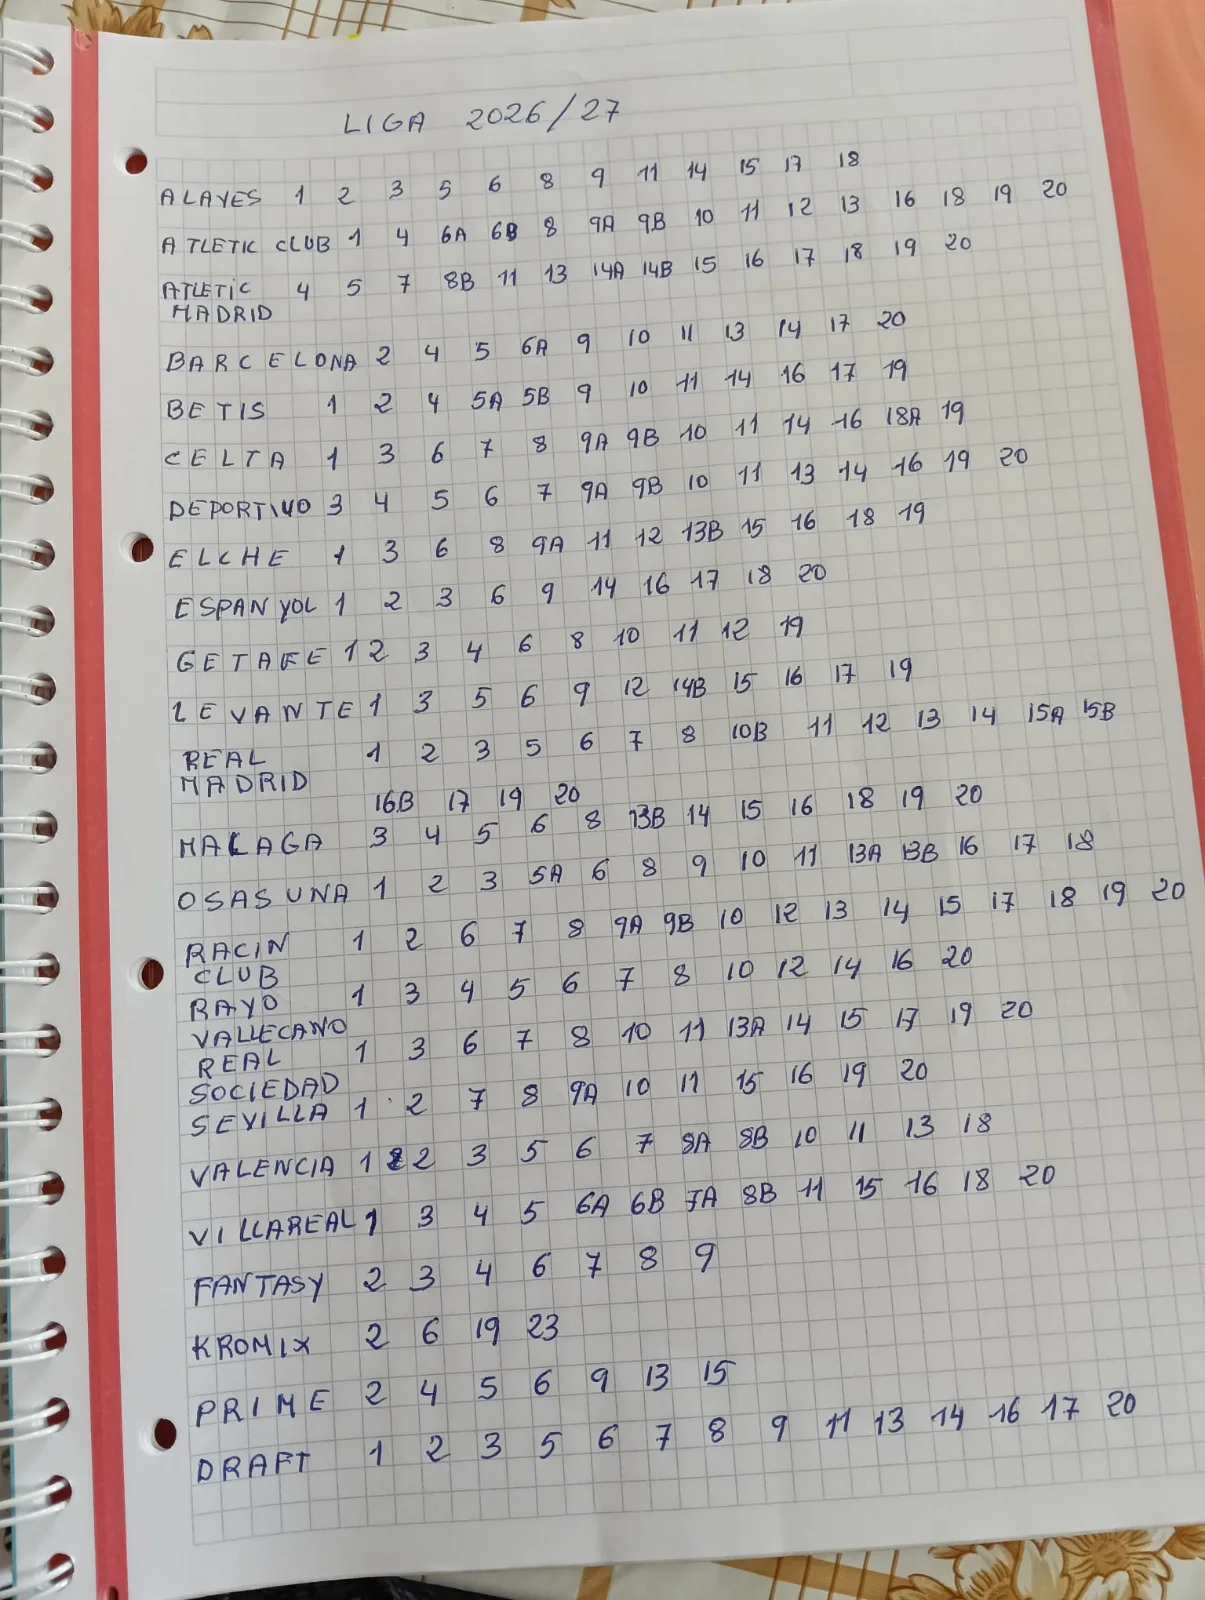 LIGA 2026/27
ALAVES 1 2 3 5 6 8 9 11 14 15 17 18
ATLETIC CLUB 1 4 6A 6B 8 9A 9B 10 11 12 13 16 18 19 20
ATLETIC MADRID 4 5 7 8B 11 13 14A 14B 15 16 17 18 19 20
BARCELONA 2 4 5 6A 9 10 11 13 14 17 20
BETIS 1 2 4 5A 5B 9 10 11 14 16 17 19
CELTA 1 3 6 7 8 9A 9B 10 11 14 16 18A 19
DEPORTIVO 3 4 5 6 7 9A 9B 10 11 13 14 16 19 20
ELCHE 1 3 6 8 9A 11 12 13B 15 16 18 19
ESPANYOL 1 2 3 6 9 14 16 17 18 20
GETAFE 1 2 3 4 6 8 10 11 12 19
LEVANTE 1 3 5 6 9 12 14B 15 16 17 19
REAL MADRID 1 2 3 5 6 7 8 10B 11 12 13 14 15A 15B
16B 17 19 20
MALAGA 3 4 5 6 8 13B 14 15 16 18 19 20
OSASUNA 1 2 3 5A 6 8 9 10 11 13A 13B 16 17 18
RACIN CLUB 1 2 6 7 8 9A 9B 10 12 13 14 15 17 18 19 20
RAYO VALLECANO 1 3 4 5 6 7 8 10 12 14 16 20
REAL SOCIEDAD 1 3 6 7 8 10 11 13A 14 15 17 19 20
SEVILLA 1 2 7 8 9A 10 11 15 16 19 20
VALENCIA 1 2 3 5 6 7 8A 8B 10 11 13 18
VILLAREAL 1 3 4 5 6A 6B 7A 8B 11 15 16 18 20
FANTASY 2 3 4 6 7 8 9
KROMIX 2 6 19 23
PRIME 2 4 5 6 9 13 15
DRAFT 1 2 3 5 6 7 8 9 11 13 14 16 17 20